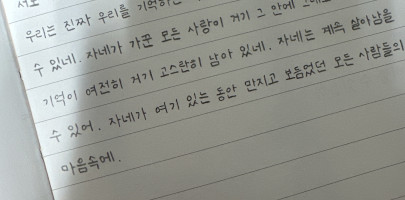 서로
우리는 진짜 우리를 기억하는
수 있네. 자네가 가꾼 모든 사랑이 거기 그 안에
기억이 여전히 거기 고스란히 남아 있네. 자네는 계속 살아남을
수 있어. 자네가 여기 있는 동안 만지고 보듬었던 모든 사람들의
마음속에.